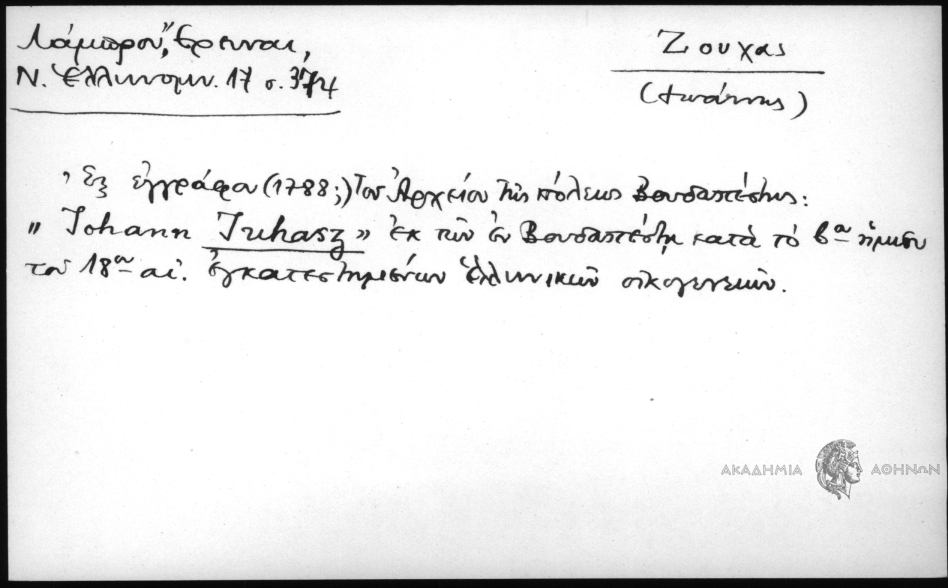 Λάμπρου, "Έρευναι,
Ν. Ἑλληνομν. 17 σ. 374
Ζουχας
(Ἰωάννης)
Ἐξ ἐγγράφου (1788;) τοῦ Ἀρχείου τῆς πόλεως Βουδαπέστης:
" Johann Juhasz " ἐκ τῶν ἐν Βουδαπέστῃ κατὰ τὸ βον ἥμισυ
τοῦ 18ου αἰ. ἐγκατεστημένων Ἑλληνικῶν οἰκογενειῶν.
ΑΚΑΔΗΜΙΑ ΑΘΗΝΩΝ